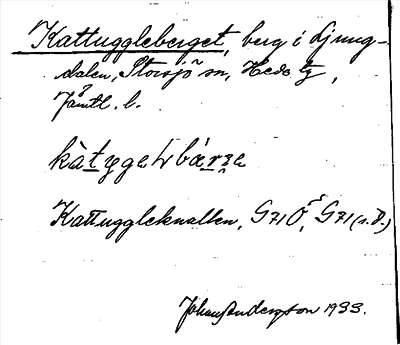 Kattuggleberget, berg i Ljung-
dalen, Storsjö sn, Hede tg,
Jämtl. l.
Kattuggleknallen, G71Ö, G71 (s.D.)
Johan Anderzon 1933.